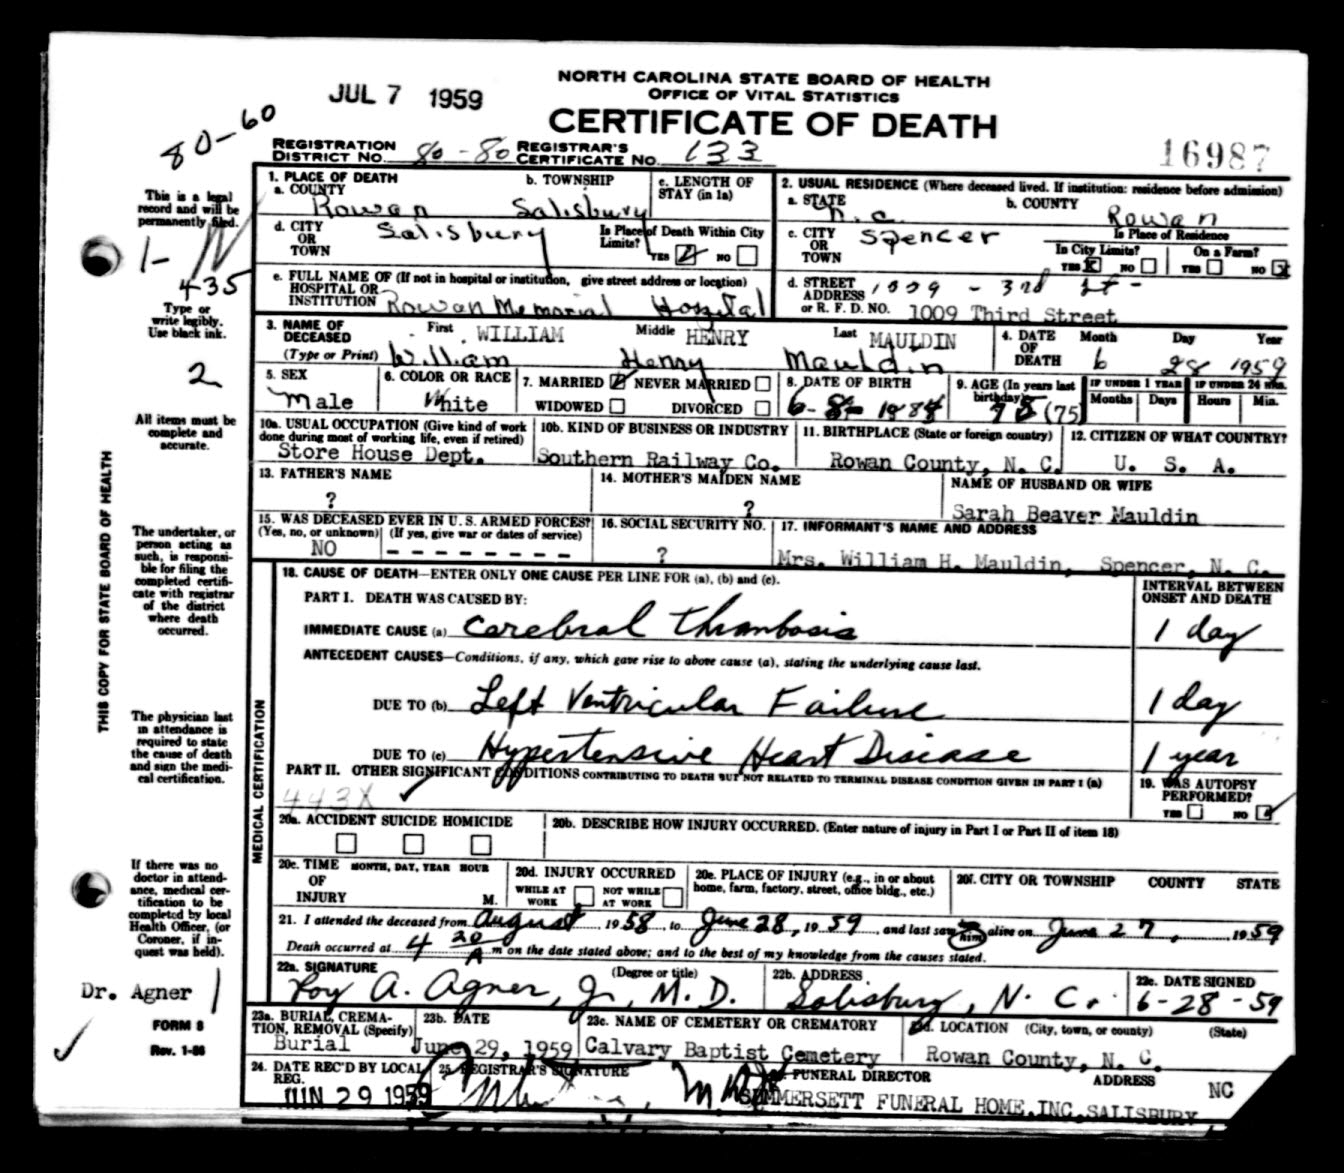 JUL 7 1959
NORTH CAROLINA STATE BOARD OF HEALTH
OFFICE OF VITAL STATISTICS
CERTIFICATE OF DEATH
80-60
REGISTRATION DISTRICT NO. 80-80 REGISTRAR'S CERTIFICATE NO. 133
16987
This is a legal record and will be permanently filed.
1-
435
Type or write legibly. Use black ink.
2
All items must be complete and accurate.
THIS COPY FOR STATE BOARD OF HEALTH
The undertaker, or person acting as such, is responsible for filing the completed certificate with registrar of the district where death occurred.
The physician last in attendance is required to state the cause of death and sign the medical certification.
If there was no doctor in attendance, medical certification to be completed by local Health Officer, (or Coroner, if inquest was held).
Dr. Agner
FORM 8
1. PLACE OF DEATH
a. COUNTY Rowan
b. TOWNSHIP Salisbury
c. LENGTH OF STAY (in 1a)
2. USUAL RESIDENCE (Where deceased lived. If institution: residence before admission)
a. STATE N.C.
b. COUNTY Rowan
d. CITY OR TOWN Salisbury
Is Place of Death Within City Limits? YES NO
c. CITY OR TOWN Spencer
Is Place of Residence
In City Limits? YES X NO
On a Farm? YES NO X
e. FULL NAME OF (If not in hospital or institution, give street address or location)
HOSPITAL OR INSTITUTION Rowan Memorial Hospital
d. STREET ADDRESS or R. F. D. NO. 1009 - 3rd St-
1009 Third Street
3. NAME OF DECEASED (Type or Print)
First WILLIAM Middle HENRY Last MAULDIN
William Henry Mauldin
4. DATE OF DEATH Month Day Year
6 28 1959
5. SEX Male
6. COLOR OR RACE White
7. MARRIED NEVER MARRIED WIDOWED DIVORCED
8. DATE OF BIRTH 6-8-1884
9. AGE (In years last birthday) 75 (75)
IF UNDER 1 YEAR Months Days
IF UNDER 24 HRS. Hours Min.
10a. USUAL OCCUPATION (Give kind of work done during most of working life, even if retired)
Store House Dept.
10b. KIND OF BUSINESS OR INDUSTRY
Southern Railway Co.
11. BIRTHPLACE (State or foreign country)
Rowan County, N. C.
12. CITIZEN OF WHAT COUNTRY?
U. S. A.
13. FATHER'S NAME
?
14. MOTHER'S MAIDEN NAME
?
NAME OF HUSBAND OR WIFE
Sarah Beaver Mauldin
15. WAS DECEASED EVER IN U. S. ARMED FORCES?
(Yes, no, or unknown) (If yes, give war or dates of service)
NO - - - - - - - -
16. SOCIAL SECURITY NO.
?
17. INFORMANT'S NAME AND ADDRESS
Mrs. William H. Mauldin, Spencer, N. C.
MEDICAL CERTIFICATION
18. CAUSE OF DEATH—ENTER ONLY ONE CAUSE PER LINE FOR (a), (b) and (c).
INTERVAL BETWEEN ONSET AND DEATH
PART I. DEATH WAS CAUSED BY:
IMMEDIATE CAUSE (a) Carebral Thrombosis 1 day
ANTECEDENT CAUSES—Conditions, if any, which gave rise to above cause (a), stating the underlying cause last.
DUE TO (b) Left Ventricular Failure 1 day
DUE TO (c) Hypertensive Heart Disease 1 year
PART II. OTHER SIGNIFICANT CONDITIONS CONTRIBUTING TO DEATH BUT NOT RELATED TO TERMINAL DISEASE CONDITION GIVEN IN PART I (a)
443X
19. WAS AUTOPSY PERFORMED?
YES NO
20a. ACCIDENT SUICIDE HOMICIDE
20b. DESCRIBE HOW INJURY OCCURRED. (Enter nature of injury in Part I or Part II of item 18)
20c. TIME OF INJURY MONTH, DAY, YEAR HOUR M.
20d. INJURY OCCURRED WHILE AT WORK NOT WHILE AT WORK
20e. PLACE OF INJURY (e.g., in or about home, farm, factory, street, office bldg., etc.)
20f. CITY OR TOWNSHIP COUNTY STATE
21. I attended the deceased from August 1958 to June 28, 1959, and last saw him alive on June 27, 1959
Death occurred at 4 20 A m on the date stated above; and to the best of my knowledge from the causes stated.
22a. SIGNATURE (Degree or title)
Roy A. Agner, Jr, M.D.
22b. ADDRESS
Salisbury, N. C.
22c. DATE SIGNED
6-28-59
23a. BURIAL, CREMATION, REMOVAL (Specify)
Burial
23b. DATE
June 29, 1959
23c. NAME OF CEMETERY OR CREMATORY
Calvary Baptist Cemetery
23d. LOCATION (City, town, or county) (State)
Rowan County, N. C.
24. DATE REC'D BY LOCAL REG.
JUN 29 1959
25. REGISTRAR'S SIGNATURE
FUNERAL DIRECTOR ADDRESS
SUMMERSETT FUNERAL HOME, INC. SALISBURY NC